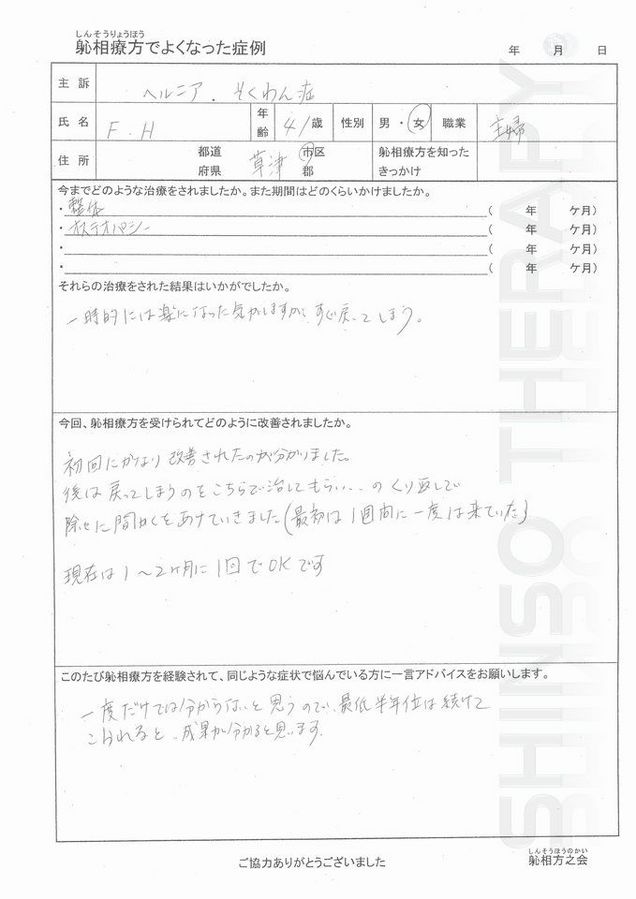 しんそうりょうほう
躰相療方でよくなった症例
年 月 日
主訴 ヘルニア．そくわん症
氏名 F.H 年齢 41歳 性別 男・女 職業 主婦
住所 都道府県 草津 市区郡 躰相療方を知ったきっかけ
今までどのような治療をされましたか。また期間はどのくらいかけましたか。
・整体 ( 年 ケ月)
・オステオパシー ( 年 ケ月)
・ ( 年 ケ月)
・ ( 年 ケ月)
それらの治療をされた結果はいかがでしたか。
一時的には楽になった気がしますが、すぐ戻ってしまう。
今回、躰相療方を受けられてどのように改善されましたか。
初回にかなり改善されたのが分かりました。
後は戻ってしまうのをこちらで治してもらい...のくり返しで
除せに間かくをあけていきました(最初は1週間に一度は来ていた)
現在は1～2ヶ月に1回でOKです
このたび躰相療方を経験されて、同じような症状で悩んでいる方に一言アドバイスをお願いします。
一度だけでは分からないと思うので、最低半年位は続けて
こられると、成果が分かると思います.
ご協力ありがとうございました
しんそうほうのかい
躰相方之会
SHINSO THERAPY